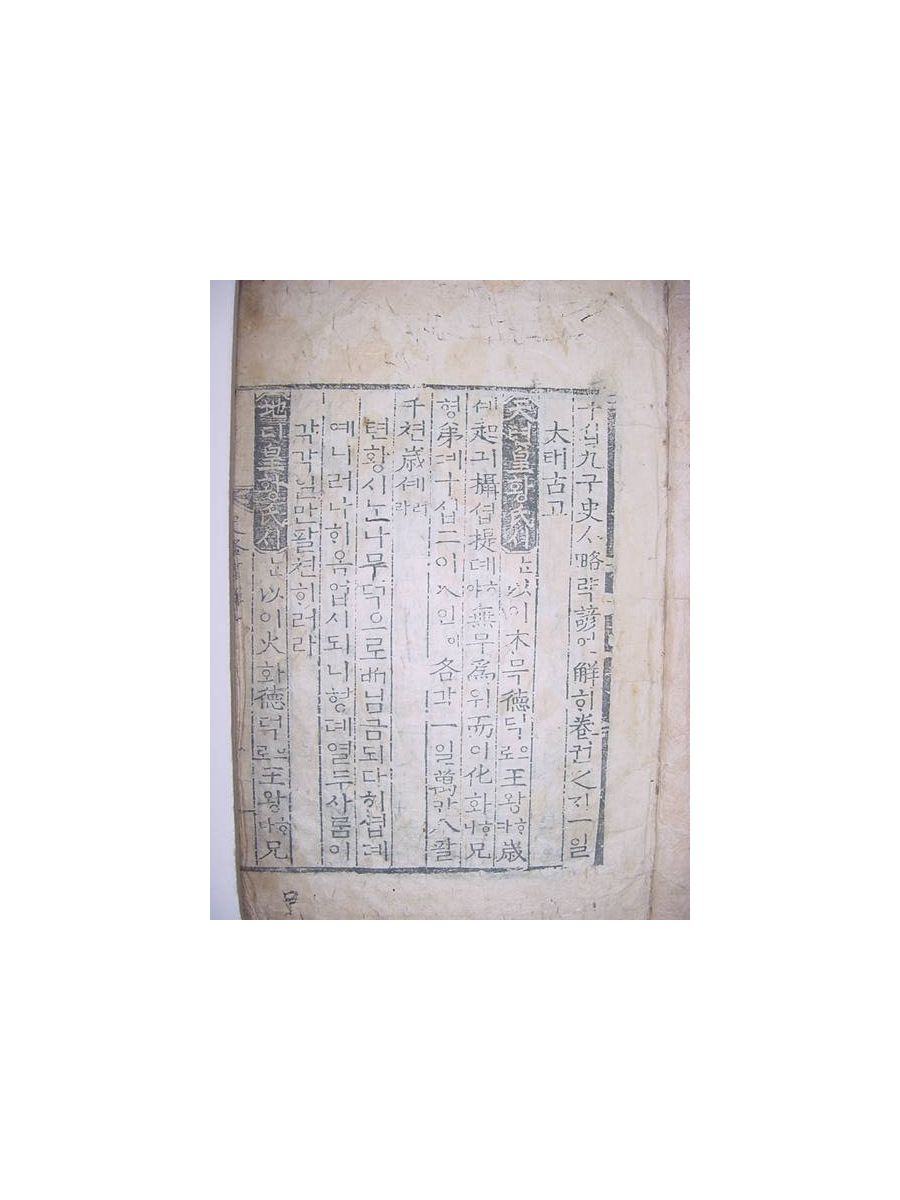 十십九구史ᄉ略략諺언解ᄒᆡ卷권之지一일
太태古고
天텬皇황氏시ᄂᆞᆫ以이木목德덕으로王왕ᄒᆞ야歲
셰起긔攝셥提뎨ᄒᆞ야無무爲위而이化화ᄒᆞ니兄
형弟뎨十십二이人인이各각一일萬만八팔
千쳔歲셰러라
텬황시ᄂᆞᆫ나무덕으로ᄡᅥ님금되다ᄒᆡ셥뎨
예니러나ᄒᆞ옴업시되니형뎨열두사ᄅᆞᆷ이
각각일만팔쳔ᄒᆡ러라
地디皇황氏시ᄂᆞᆫ以이火화德덕으로王왕ᄒᆞ니兄